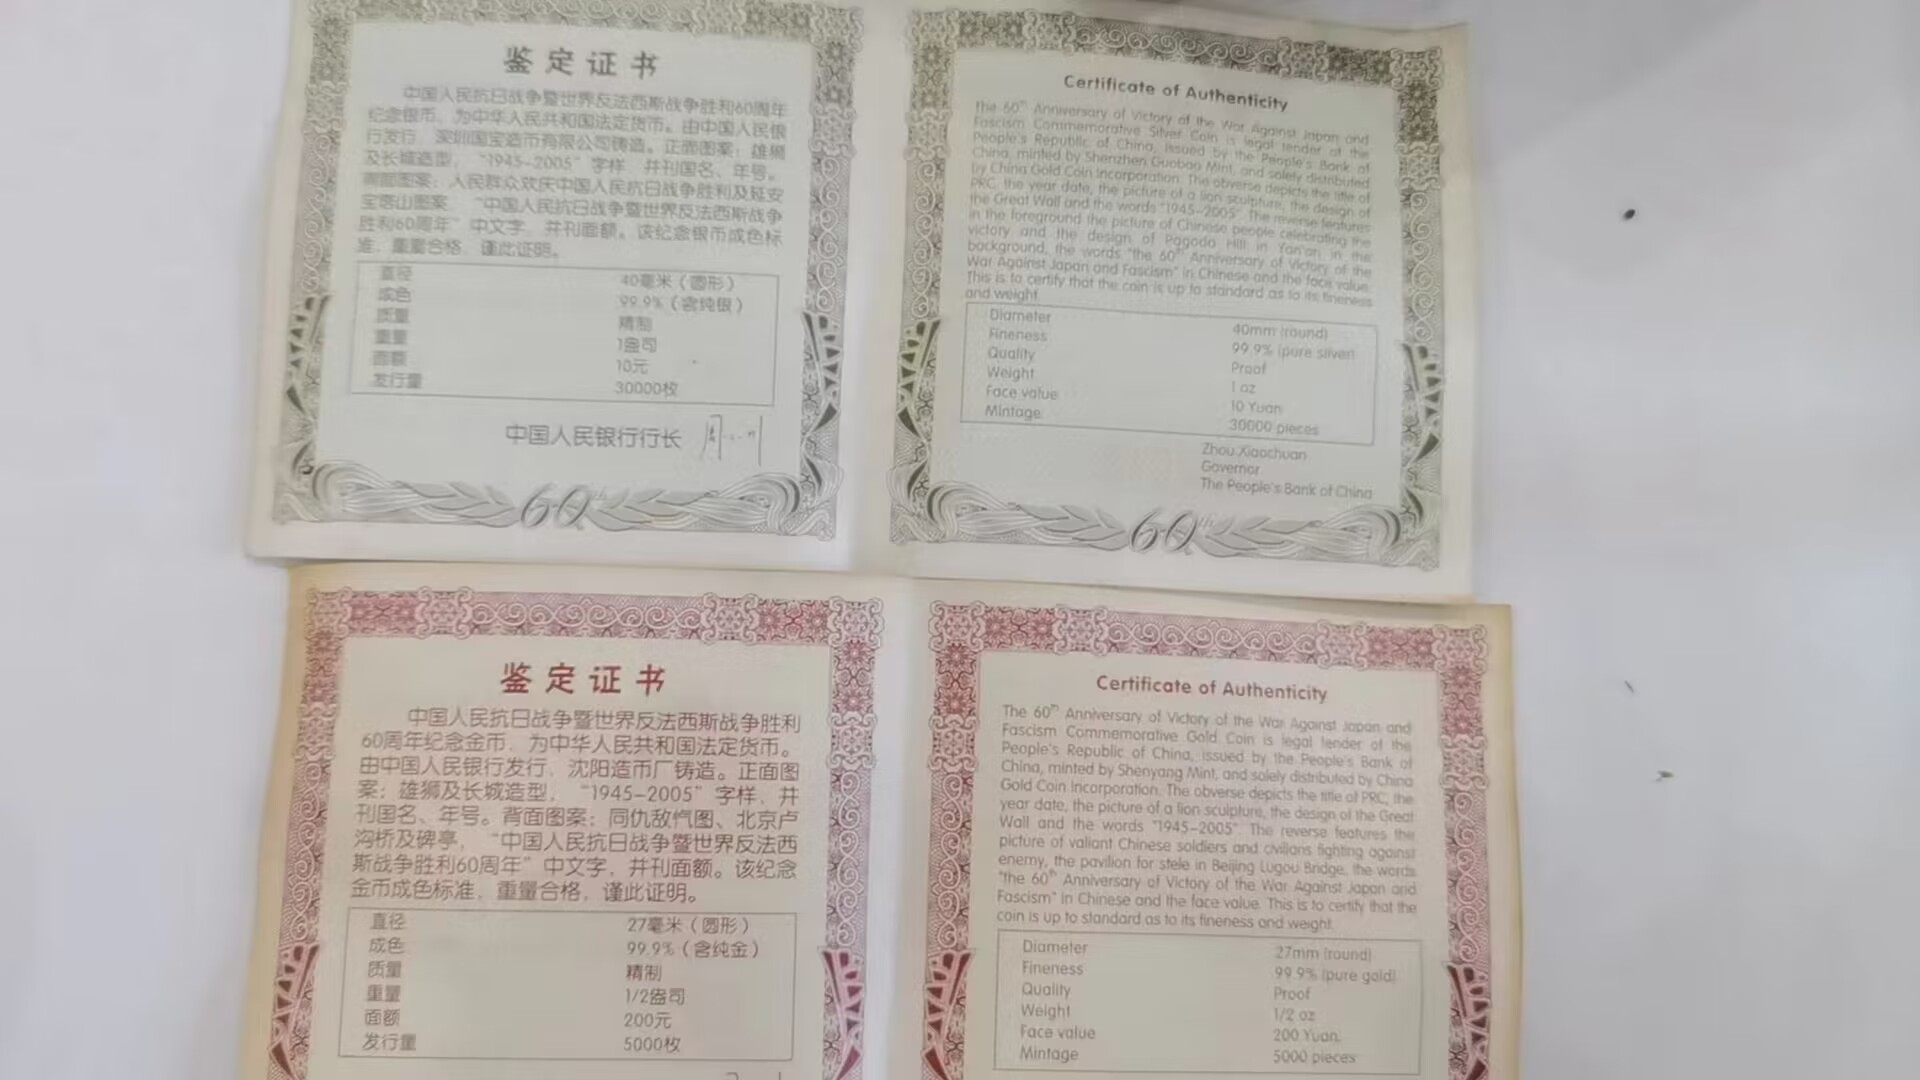 鉴定证书
中国人民抗日战争暨世界反法西斯战争胜利60周年
纪念银币，为中华人民共和国法定货币。由中国人民银
行发行，深圳国宝造币有限公司铸造。正面图案：雄狮
及长城造型，“1945-2005”字样，并刊国名、年号。
背面图案：人民群众欢庆中国人民抗日战争胜利及延安
宝塔山图案，“中国人民抗日战争暨世界反法西斯战争
胜利60周年”中文字，并刊面额。该纪念银币成色标
准，重量合格，谨此证明。
直径 40毫米（圆形）
成色 99.9%（含纯银）
质量 精制
重量 1盎司
面额 10元
发行量 30000枚
中国人民银行行长
60th
Certificate of Authenticity
The 60th Anniversary of Victory of the War Against Japan and
Fascism Commemorative Silver Coin is legal tender of the
People's Republic of China, issued by the People's Bank of
China, minted by Shenzhen Guobao Mint, and solely distributed
by China Gold Coin Incorporation. The obverse depicts the title of
PRC, the year date, the picture of a lion sculpture, the design of
the Great Wall and the words "1945-2005". The reverse features
in the foreground the picture of Chinese people celebrating the
victory and the design of Pagoda Hill in Yan'an in the
background, the words "the 60th Anniversary of Victory of the
War Against Japan and Fascism" in Chinese and the face value.
This is to certify that the coin is up to standard as to its fineness
and weight.
Diameter 40mm (round)
Fineness 99.9% (pure silver)
Quality Proof
Weight 1 oz
Face value 10 Yuan
Mintage 30000 pieces
Zhou Xiaochuan
Governor
The People's Bank of China
60th
鉴定证书
中国人民抗日战争暨世界反法西斯战争胜利
60周年纪念金币，为中华人民共和国法定货币。
由中国人民银行发行，沈阳造币厂铸造。正面图
案：雄狮及长城造型，“1945-2005”字样，并
刊国名、年号。背面图案：同仇敌忾图、北京卢
沟桥及碑亭，“中国人民抗日战争暨世界反法西
斯战争胜利60周年”中文字，并刊面额。该纪念
金币成色标准，重量合格，谨此证明。
直径 27毫米（圆形）
成色 99.9%（含纯金）
质量 精制
重量 1/2盎司
面额 200元
发行量 5000枚
Certificate of Authenticity
The 60th Anniversary of Victory of the War Against Japan and
Fascism Commemorative Gold Coin is legal tender of the
People's Republic of China, issued by the People's Bank of
China, minted by Shenyang Mint, and solely distributed by China
Gold Coin Incorporation. The obverse depicts the title of PRC, the
year date, the picture of a lion sculpture, the design of the Great
Wall and the words "1945-2005". The reverse features the
picture of valiant Chinese soldiers and civilians fighting against
enemy, the pavilion for stele in Beijing Lugou Bridge, the words
"the 60th Anniversary of Victory of the War Against Japan and
Fascism" in Chinese and the face value. This is to certify that the
coin is up to standard as to its fineness and weight.
Diameter 27mm (round)
Fineness 99.9% (pure gold)
Quality Proof
Weight 1/2 oz
Face value 200 Yuan
Mintage 5000 pieces